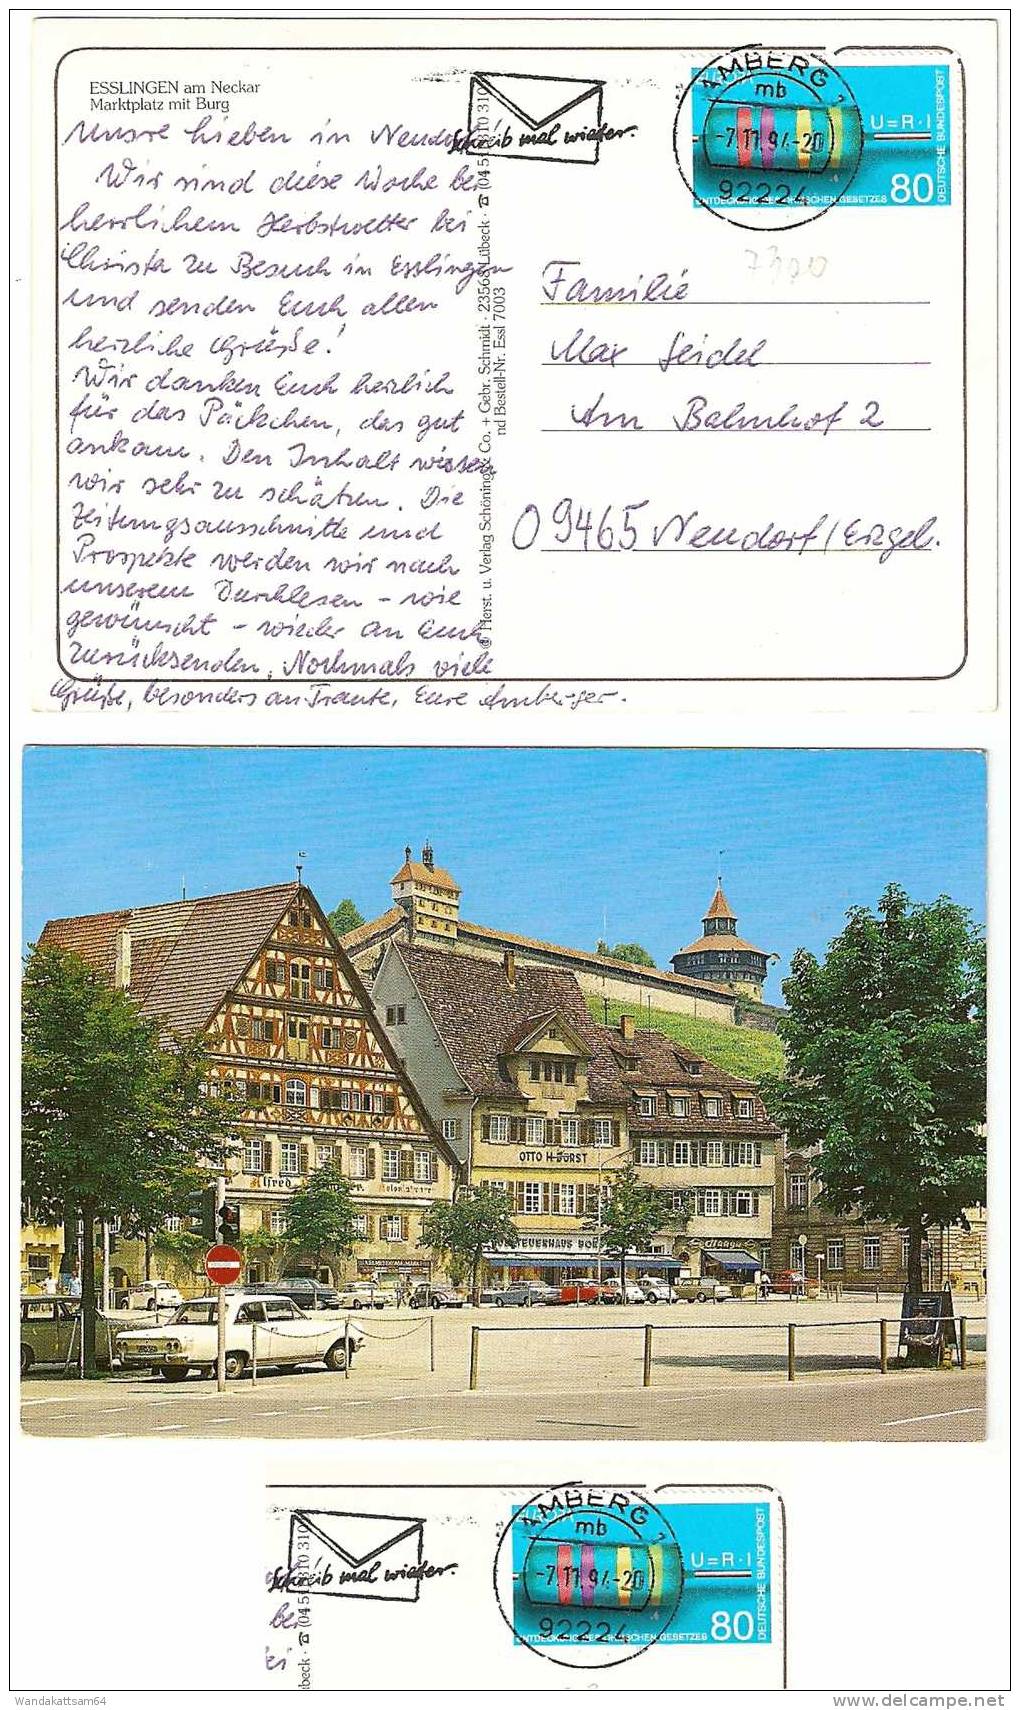 ESSLINGEN am Neckar
Marktplatz mit Burg
Unsre Lieben in Neudorf!
Wir sind diese Woche bei
herrlichem Herbstwetter bei
Christa zu Besuch in Esslingen
und senden Euch allen
herzliche Grüße!
Wir danken Euch herzlich
für das Päckchen, das gut
ankam. Den Inhalt wissen
wir sehr zu schätzen. Die
Zeitungsausschnitte und
Prospekte werden wir nach
unserem Durchlesen - wie
gewünscht - wieder an Euch
zurücksenden. Nochmals viele
Grüße, besonders an Traute, Eure Amberger.
© Herst. u. Verlag Schöning & Co. + Gebr. Schmidt · 23568 Lübeck · ☎ (04 51) 3 10 310
nd Bestell-Nr. Essl 7003
Schreib mal wieder.
AMBERG 1
mb
-7.11.94-20
92224
U=R·I
80
DEUTSCHE BUNDESPOST
ENTDECKUNG DES OHMSCHEN GESETZES
Familie
Max Seidel
Am Bahnhof 2
O 09465 Neudorf/Erzgeb.
Alfred
OTTO H. DÖRST
Schreib mal wieder.
bei
ei
übeck · ☎ (04 51) 3 10 310
AMBERG 1
mb
-7.11.94-20
92224
U=R·I
80
DEUTSCHE BUNDESPOST
ENTDECKUNG DES OHMSCHEN GESETZES
Wandakattsam64
www.delcampe.net